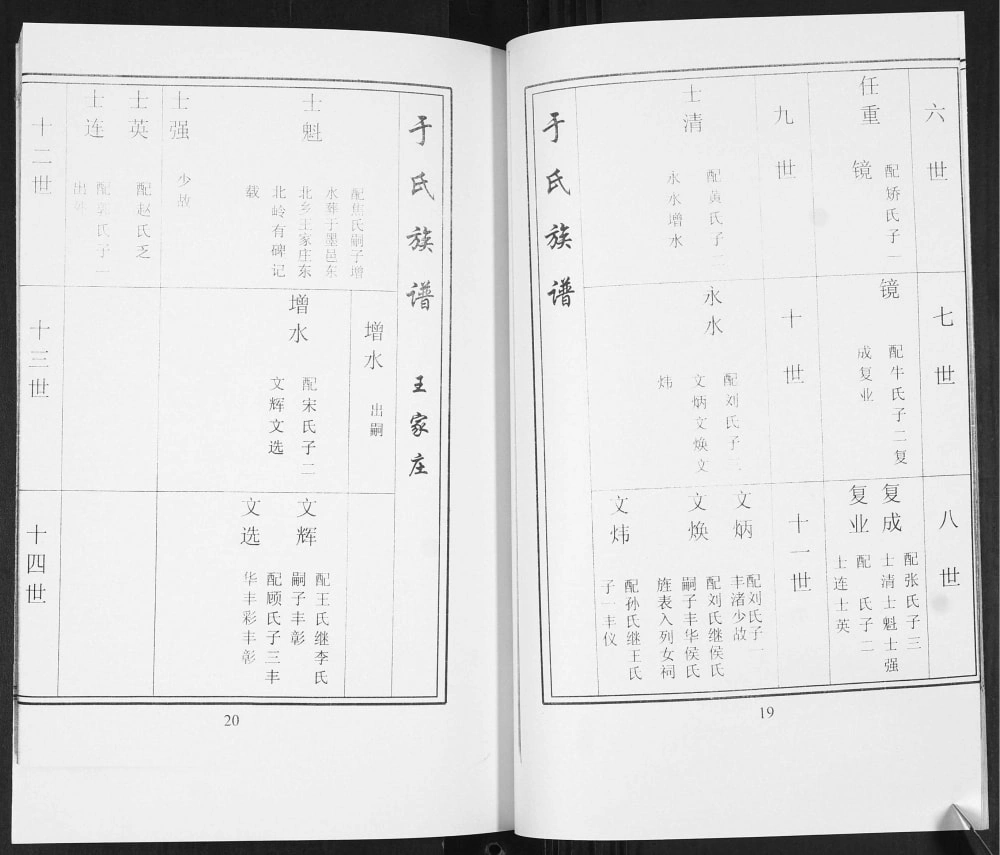 六世
任重
镜
配矫氏子一
九世
士清
配黄氏子二
永水增水
于氏族谱
七世
镜
配牛氏子二复
成复业
十世
永水
配刘氏子三
文炳文焕文
炜
八世
复成
配张氏子三
士清士魁士强
复业
配 氏子二
士连士英
十一世
文炳
配刘氏子一
丰渚少故
文焕
配刘氏继侯氏
嗣子丰华侯氏
旌表入列女祠
文炜
配孙氏继王氏
子一丰仪
19
于氏族谱 王家庄
士魁
配焦氏嗣子增
水葬于墨邑东
北乡王家庄东
北岭有碑记
载
士强
少故
士英
配赵氏乏
士连
氏子一
出
十二世
增水
出嗣
增水
配宋氏子二
文辉文选
十三世
文辉
配王氏继李氏
嗣子丰彰
文选
配顾氏子三丰
华丰彩丰彰
十四世
20